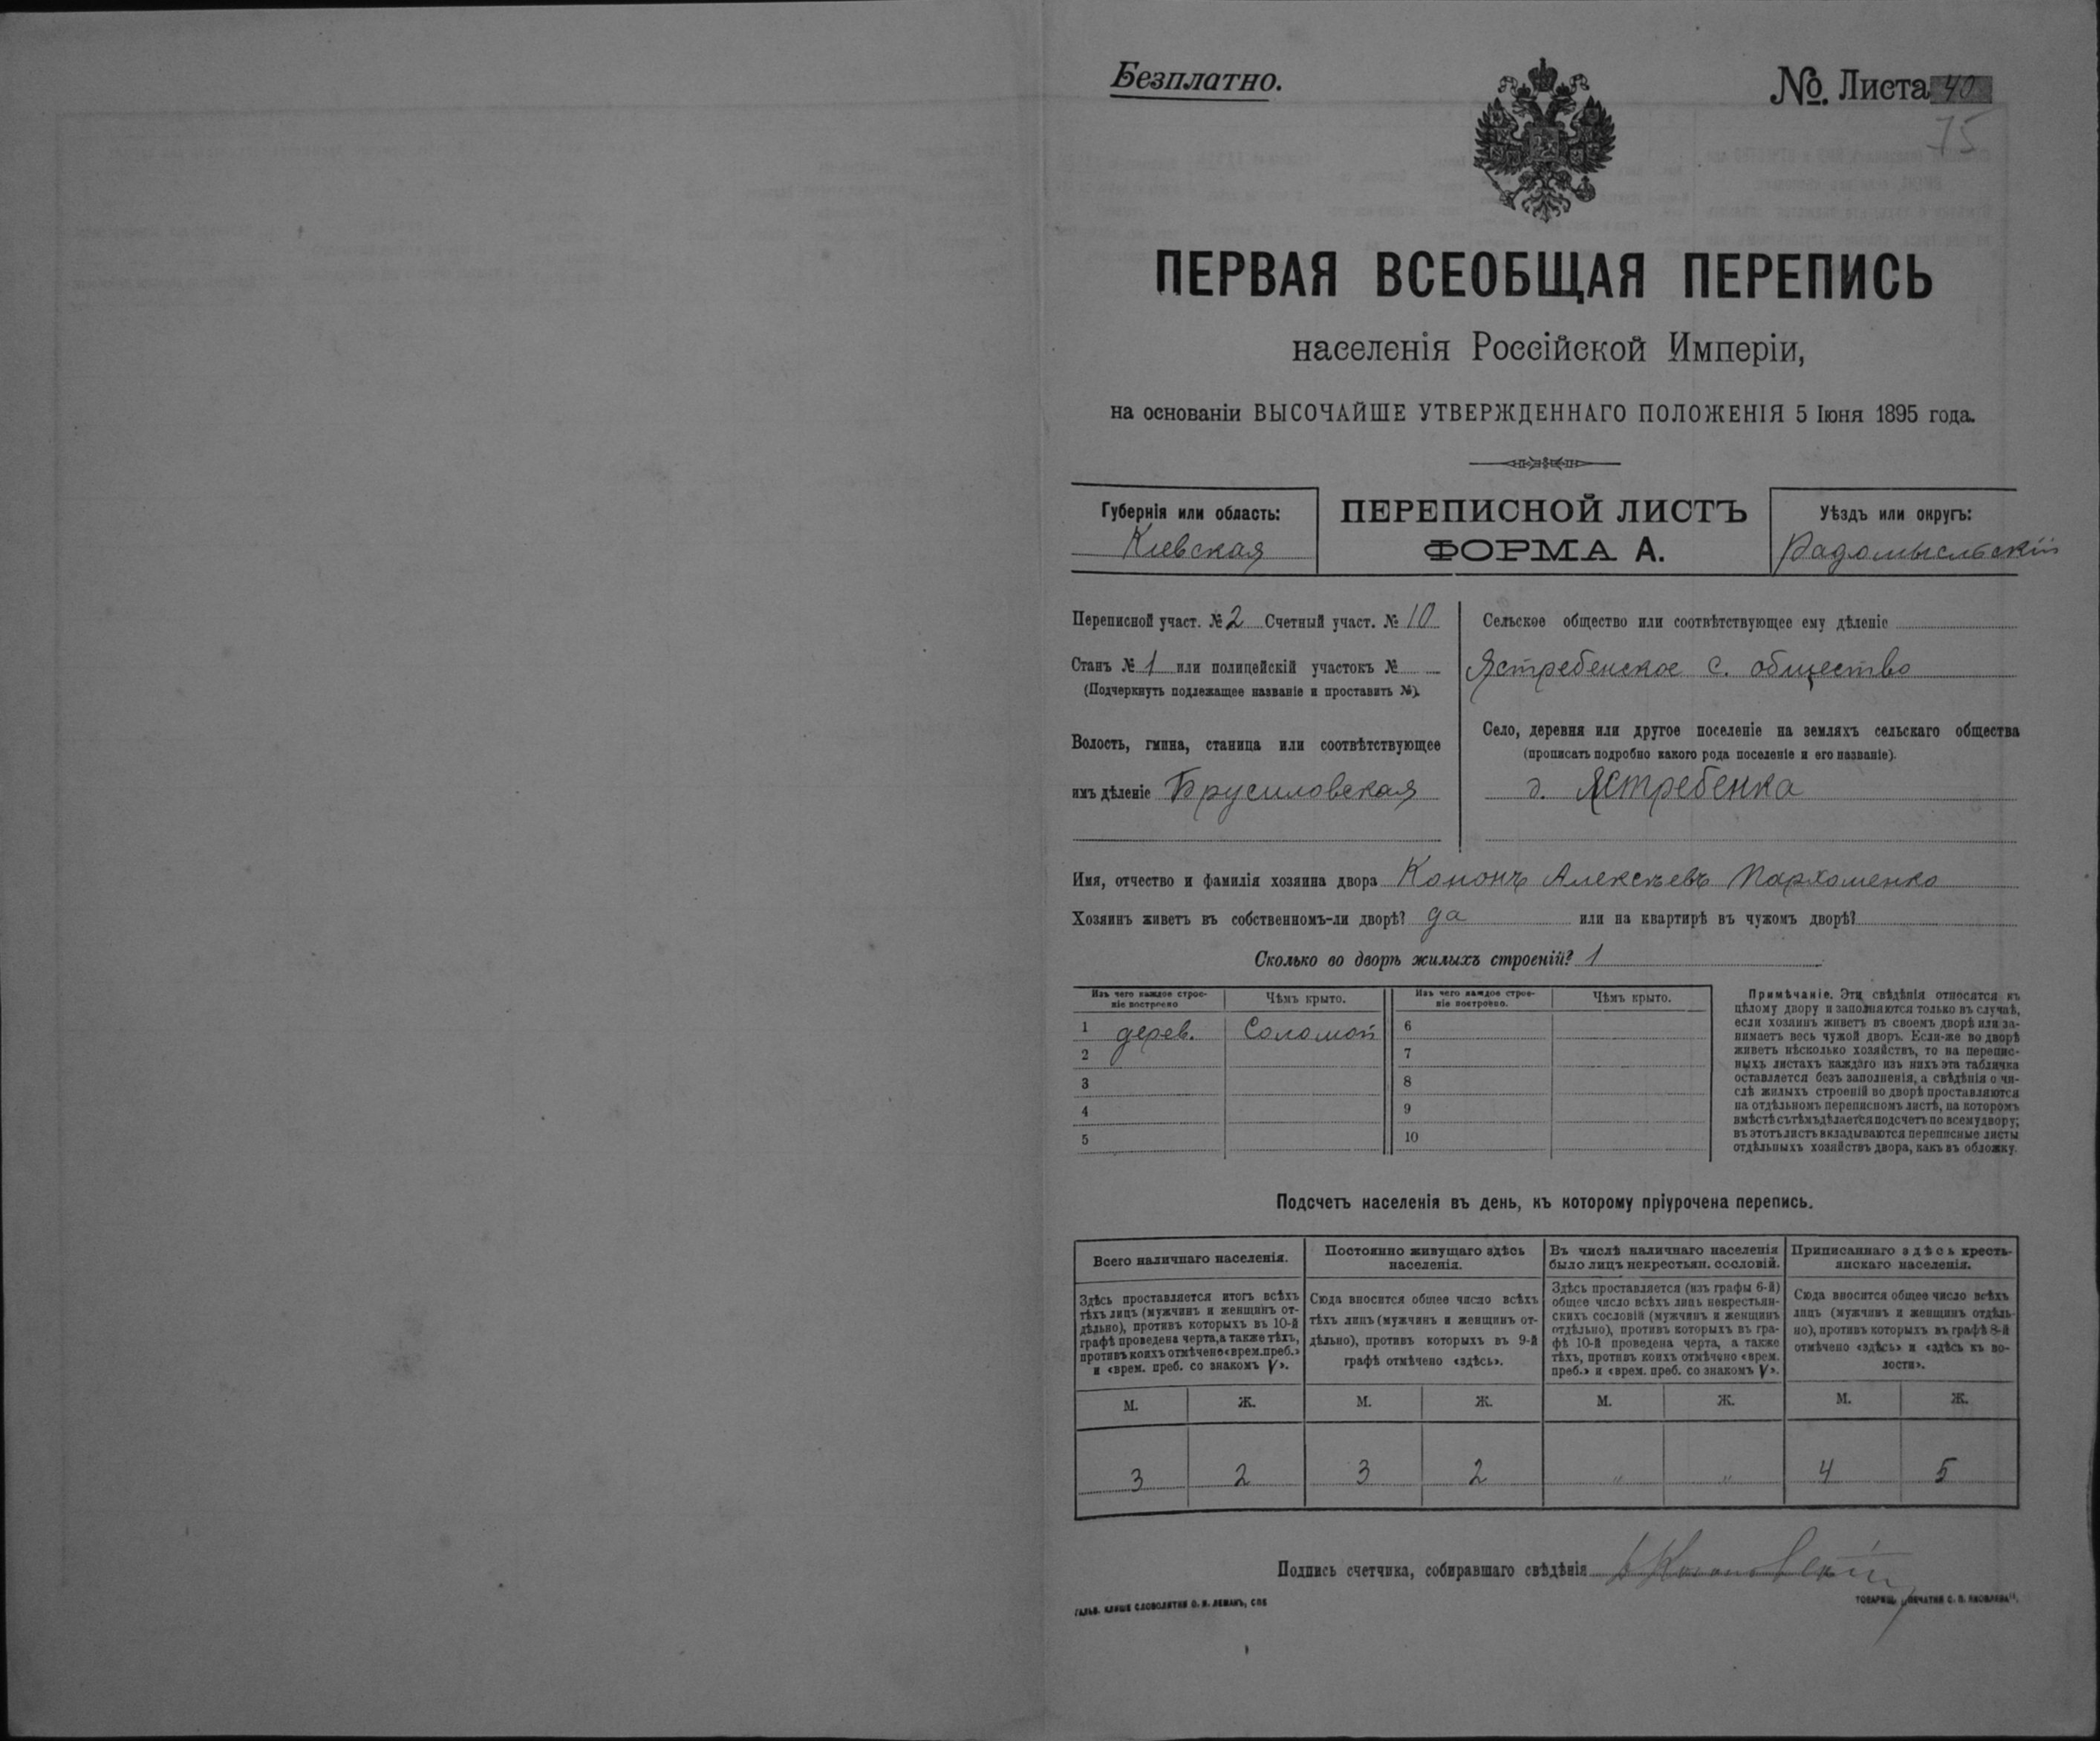 Безплатно.
№. Листа 40
75
ПЕРВАЯ ВСЕОБЩАЯ ПЕРЕПИСЬ
населенія Россійской Имперіи,
на основаніи ВЫСОЧАЙШЕ УТВЕРЖДЕННАГО ПОЛОЖЕНІЯ 5 Іюня 1895 года.
Губернія или область:
Кіевская
ПЕРЕПИСНОЙ ЛИСТЪ
ФОРМА А.
Уѣздъ или округъ:
Радомысльскій
Переписной участ. № 2 Счетный участ. № 10
Станъ № 1 или полицейскій участокъ №
(Подчеркнуть подлежащее названіе и проставить №).
Волость, гмина, станица или соотвѣтствующее
имъ дѣленіе Брусиловская
Сельское общество или соотвѣтствующее ему дѣленіе
Ястребенское с. общество
Село, деревня или другое поселеніе на земляхъ сельскаго общества
(прописать подробно какого рода поселеніе и его названіе).
д. Ястребенка
Имя, отчество и фамилія хозяина двора Кононъ Алексѣевъ Пархоменко
Хозяинъ живетъ въ собственномъ-ли дворѣ? да или на квартирѣ въ чужомъ дворѣ?
Сколько во дворѣ жилыхъ строеній? 1
Изъ чего каждое строе-
ніе построено
Чѣмъ крыто.
Изъ чего каждое строе-
ніе построено.
Чѣмъ крыто.
1 дерев. Соломой 6
2 7
3 8
4 9
5 10
Примѣчаніе. Эти свѣдѣнія относятся къ
цѣлому двору и заполняются только въ случаѣ,
если хозяинъ живетъ въ своемъ дворѣ или за-
нимаетъ весь чужой дворъ. Если-же во дворѣ
живетъ нѣсколько хозяйствъ, то на перепис-
ныхъ листахъ каждаго изъ нихъ эта табличка
оставляется безъ заполненія, а свѣдѣнія о чи-
слѣ жилыхъ строеній во дворѣ проставляются
на отдѣльномъ переписномъ листѣ, на которомъ
вмѣстѣ съ тѣмъ дѣлается подсчетъ по всему двору;
въ этотъ листъ вкладываются переписные листы
отдѣльныхъ хозяйствъ двора, какъ въ обложку.
Подсчетъ населенія въ день, къ которому пріурочена перепись.
Всего наличнаго населенія.
Здѣсь проставляется итогъ всѣхъ
тѣхъ лицъ (мужчинъ и женщинъ от-
дѣльно), противъ которыхъ въ 10-й
графѣ проведена черта, а также тѣхъ,
противъ коихъ отмѣчено «врем. преб.»
и «врем. преб. со знакомъ V».
Постоянно живущаго здѣсь
населенія.
Сюда вносится общее число всѣхъ
тѣхъ лицъ (мужчинъ и женщинъ от-
дѣльно), противъ которыхъ въ 9-й
графѣ отмѣчено «здѣсь».
Въ числѣ наличнаго населенія
было лицъ некрестьян. сословій.
Здѣсь проставляется (изъ графы 6-й)
общее число всѣхъ лицъ некрестьян-
скихъ сословій (мужчинъ и женщинъ
отдѣльно), противъ которыхъ въ гра-
фѣ 10-й проведена черта, а также
тѣхъ, противъ коихъ отмѣчено «врем.
преб.» и «врем. преб. со знакомъ V».
Приписаннаго здѣсь кресть-
янскаго населенія.
Сюда вносится общее число всѣхъ
лицъ (мужчинъ и женщинъ отдѣль-
но), противъ которыхъ въ графѣ 8-й
отмѣчено «здѣсь» и «здѣсь къ во-
лости».
М. Ж. М. Ж. М. Ж. М. Ж.
3 2 3 2 " " 4 5
Подпись счетчика, собиравшаго свѣдѣнія
ГАЛЬВ. КЛИШЕ СЛОВОЛИТНИ О. И. ЛЕМАНЪ, СПБ
ТОВАРИЩ. „ПЕЧАТНЯ С. П. ЯКОВЛЕВА“.